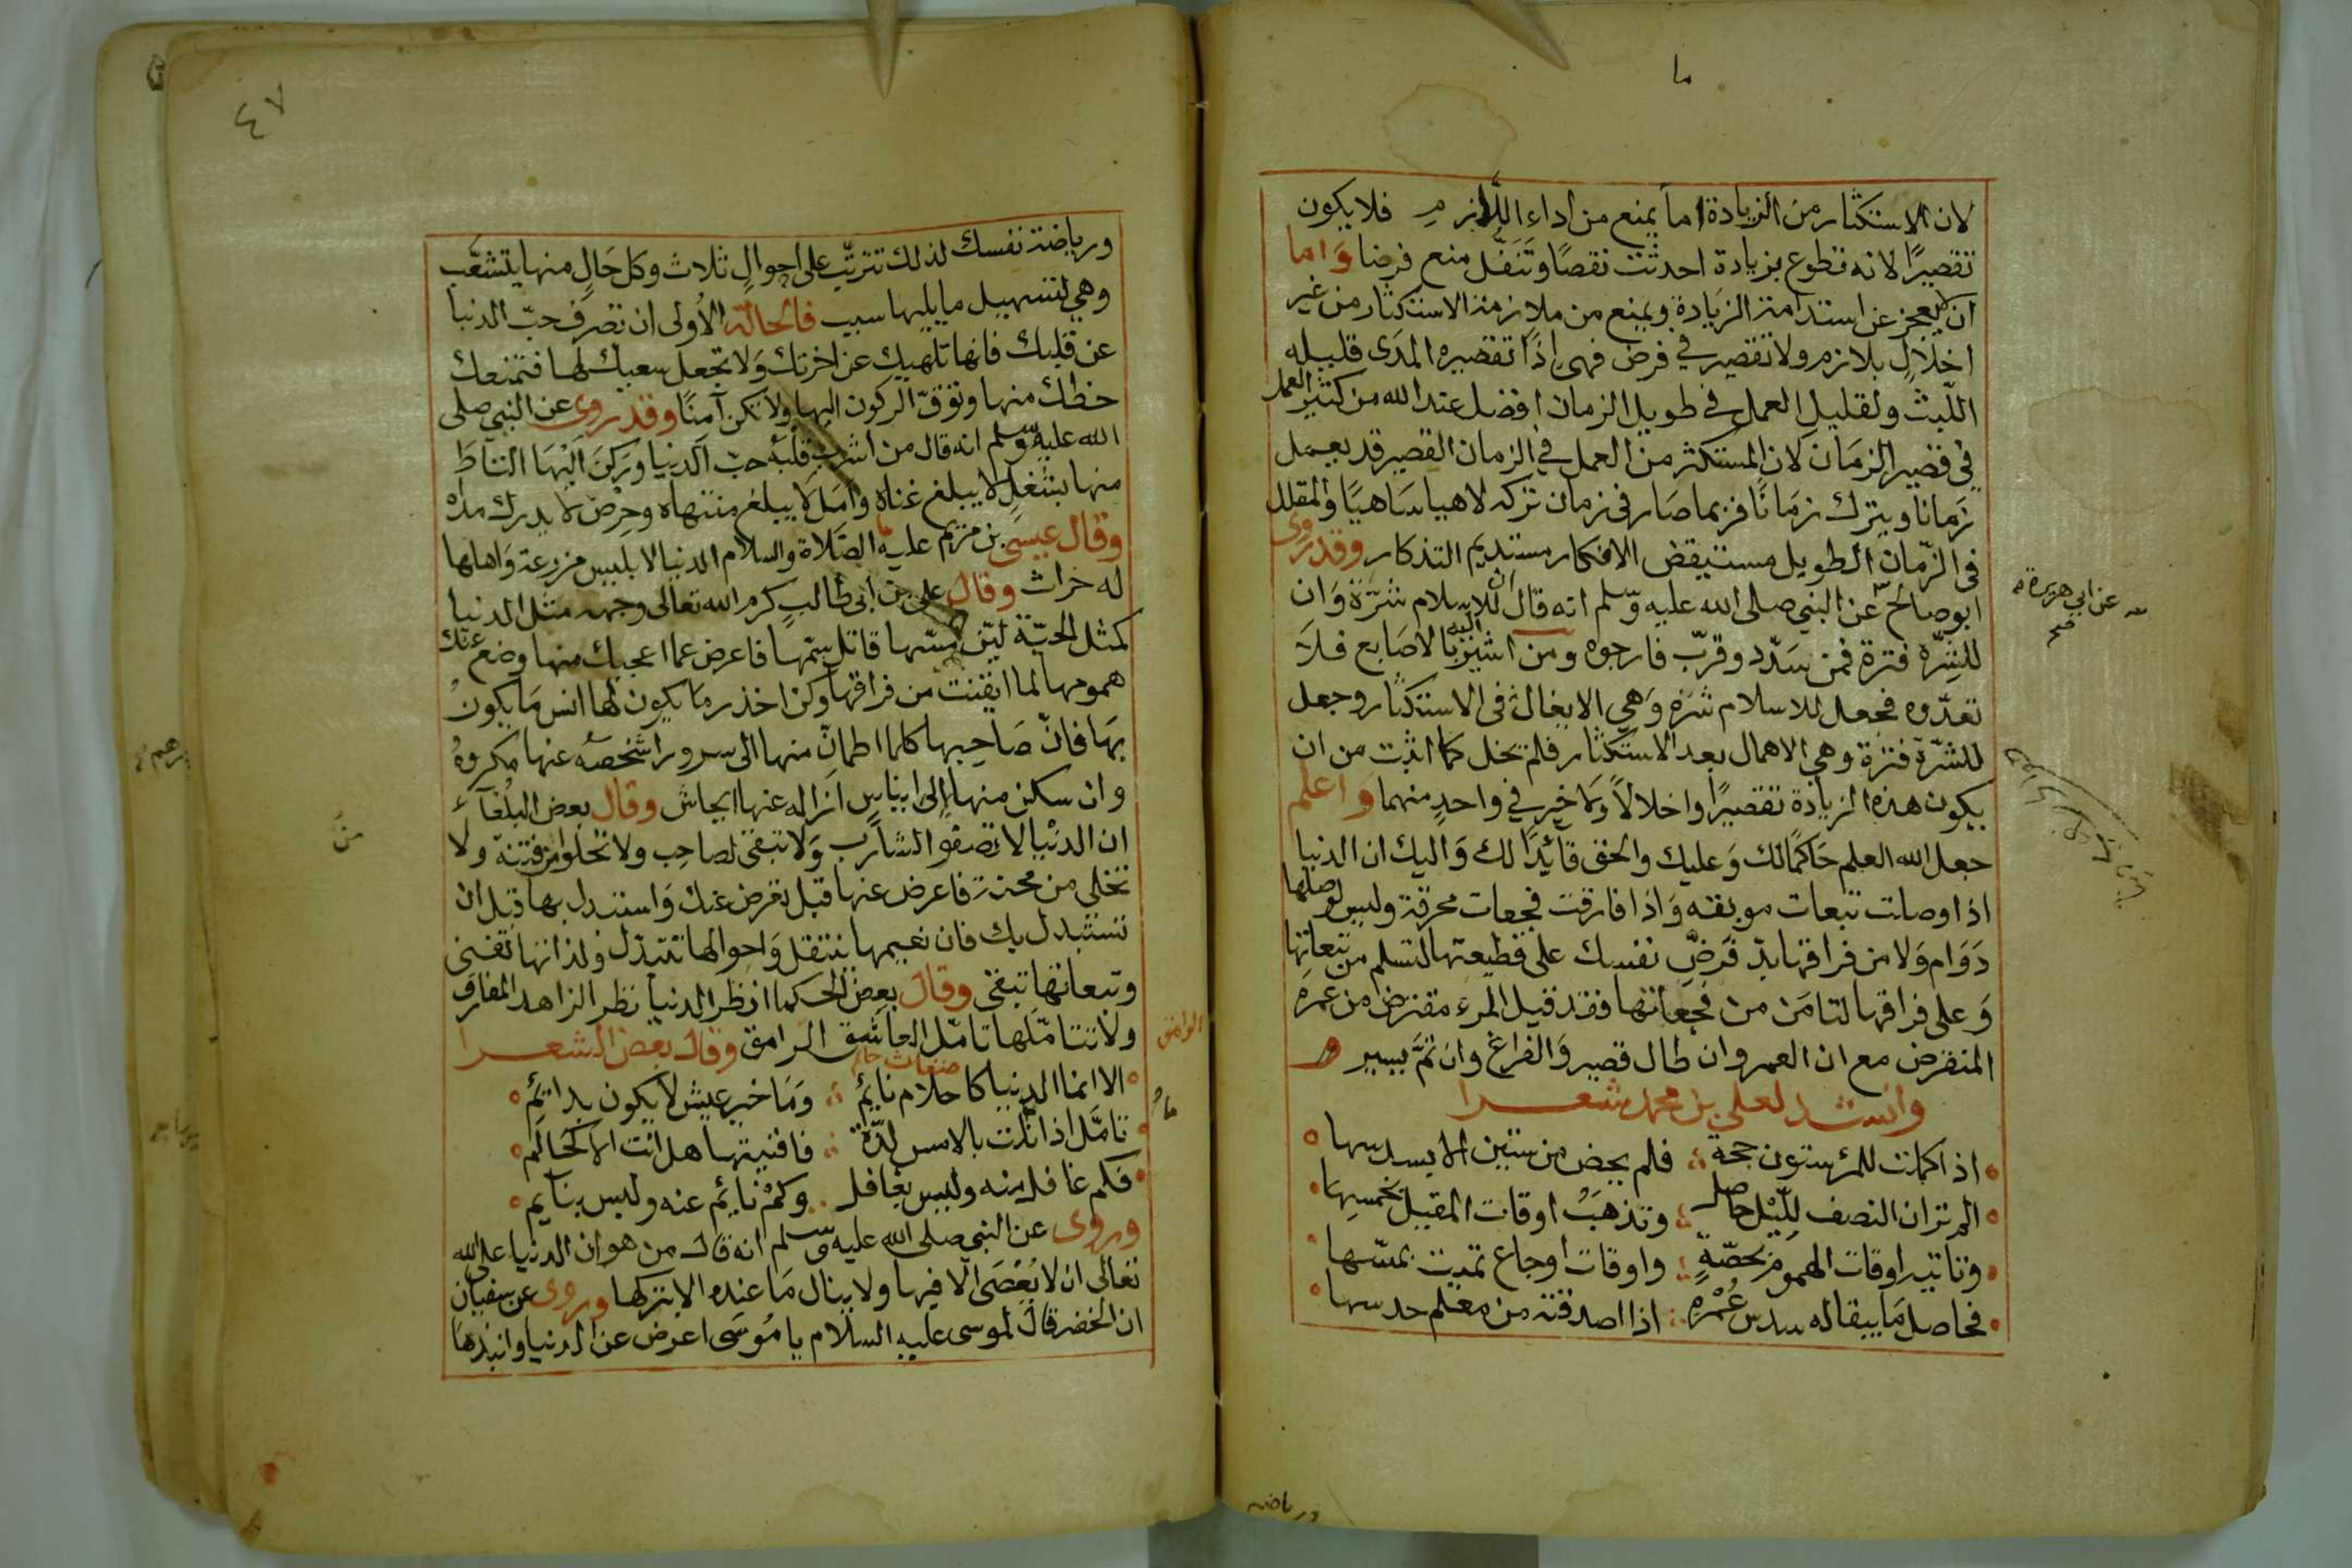 ما
لان الاستكثار من الزيادة اما يمنع من اداء اللازم فلا يكون
تقصيرًا لانه تطوع بزيادة احدثت نقصًا وتنفل منع فرضا واما
ان يعجز عن استدامة الزيادة ويمنع من ملازمة الاستكثار من غير
اخلال بلازم ولا تقصير في فرض فهى اذًا تقصيره المدى قليله
اللبث ولقليل العمل في طويل الزمان افضل عند الله من كثير العمل
في قصير الزمان لان المستكثر من العمل في الزمان القصير قد يعمل
زمانا ويترك زمانًا فربما صار فى زمان تركه لاهيا ساهيًا والمقلل
فى الزمان الطويل مستيقض الافكار مستديم التذكار وقدروى
ابو صالح عن النبي صلى الله عليه وسلم انه قال ان للاسلام شرة وان
عن ابي هريرة
صح
للشره فترة فمن سدد وقرب فارجوه ومن اشير اليه بالاصابع فلا
تعدوه فجعل للاسلام شره وهي الايغال فى الاستكثار وجعل
للشرة فترة وهي الاهمال بعد الاستكثار فلم تخل كما اثبت من ان
يكون هذه الزيادة تقصيرًا واخلالاً ولا خير في واحد منهما واعلم
جعل الله العلم حاكمًا لك وعليك والحق قائدًا لك واليك ان الدنيا
اذا وصلت تبعات موبقه واذا فارقت فجعات محرقة وليس لوصلها
دوام ولا من فراقها بد فرض نفسك على قطيعتها لتسلم من تبعاتها
وعلى فراقها لتامن من فجعاتها فقد قيل المرء مقترض من عمره
المنقرض مع ان العمر وان طال قصير والفراغ وان تم يسير
وانشد لعلي بن محمد شعرا
اذا كملت للمرء ستون حجة فلم يحض من ستين الا بسدسها
الم تر ان النصف لليل حاصل وتذهب اوقات المقيل بخمسها
وتاتيه اوقات الهموم بحصة واوقات اوجاع تميت بمسها
فحاصل ما يبقا له سدس عمره اذا اصدقته من معلم حدسها
ورياضة
٤٧
ورياضة نفسك لذلك تترتب على احوال ثلاث وكل حال منها يتشعب
وهي لتسهيل ما يليها سبب فالحالة الاولى ان تصرف حب الدنيا
عن قلبك فانها تلهيك عن اخرتك ولا تجعل سعيك لها فتمنعك
حظك منها وتوق الركون اليها ولا تكن آمنًا وقدروى عن النبي صلى
الله عليه وسلم انه قال من اشرب قلبه حب الدنيا وركن اليها التاط
منها بشغل لا يبلغ عناه وامل لا يبلغ منتهاه وحرص لا يدرك مداه
وقال عيسى بن مريم عليه الصلاة والسلام الدنيا لابليس مزرعة واهلها
له حراث وقال على بن ابى طالب كرم الله تعالى وجهه مثل الدنيا
كمثل الحية لين مسها قاتل سمها فاعرض عما اعجبك منها وضع عنك
همومها لما ايقنت من فراقها وكن احذر ما يكون لها انس ما يكون
بها فان صاحبها كلما اطمان منها الى سرور اشخصه عنها مكروه
وان سكن منها الى ايناس ازاله عنها ايحاش وقال بعض البلغآء
ان الدنيا لا تصفو الشارب ولا تبقى لصاحب ولا تخلوا من فتنة ولا
تخلى من محنة فاعرض عنها قبل تعرض عنك واستبدل بها قبل ان
تستبدل بك فان نعيمها ينتقل واحوالها تتبدل ولذاتها تفنى
وتبعاتها تبقى وقال بعض الحكما انظر الدنيا نظر الزاهد المفارق
ولا تتاملها تامل العاشق الرامق وقال بعض الشعرا
الوامق
الا انما الدنيا كاحلام نائم وما خير عيش لا يكون بدائم
تامل اذا نلت بالامس لذة فافنيتها هل انت الا كحالم
فكم غافل منه وليس بغافل وكم نائم عنه وليس بنائم
وروى عن النبي صلى الله عليه وسلم انه قال من هوان الدنيا على الله
تعالى ان لا يعصى الا فيها ولا ينال ما عنده الا بتركها وروى عن سفيان
ان الخضر قال لموسى عليه السلام يا موسى اعرض عن الدنيا وانبذها